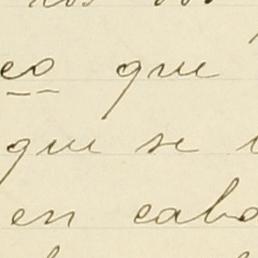 eo que
que se
en cabo